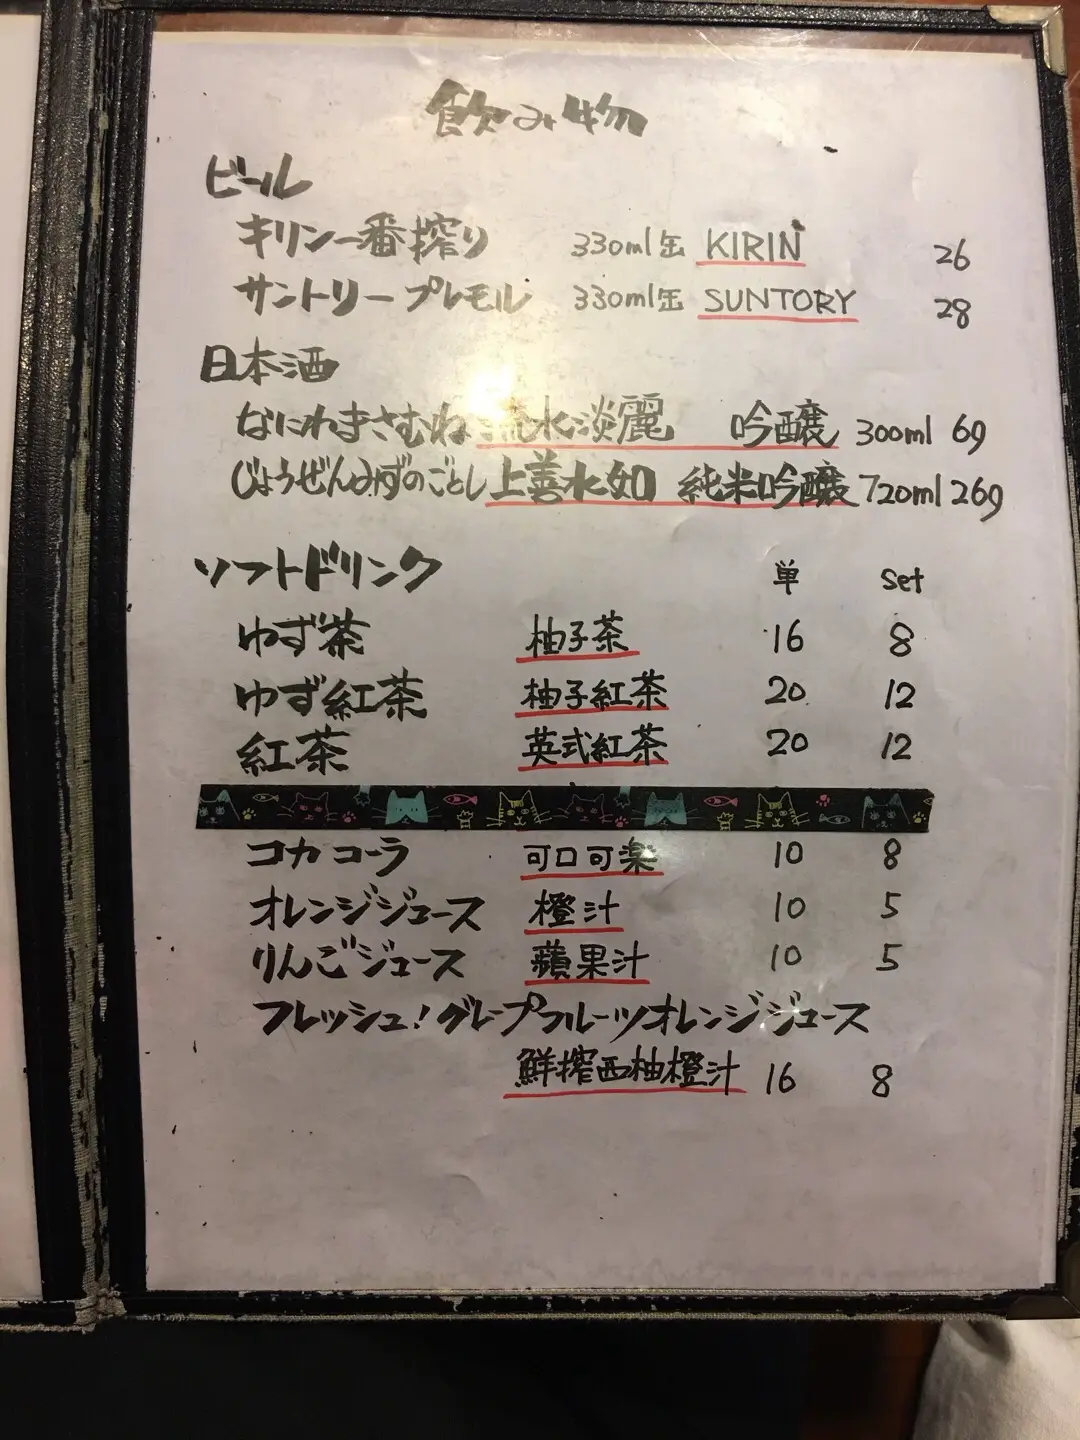 飲み物
ビール
キリン一番搾り 330ml缶 KIRIN 26
サントリープレモル 330ml缶 SUNTORY 28
日本酒
なにわまさむね 流水淡麗 吟醸 300ml 69
じょうぜんみずのごとし 上善水如 純米吟醸 720ml 269
ソフトドリンク 単 set
ゆず茶 柚子茶 16 8
ゆず紅茶 柚子紅茶 20 12
紅茶 英式紅茶 20 12
コカコーラ 可口可楽 10 8
オレンジジュース 橙汁 10 5
りんごジュース 蘋果汁 10 5
フレッシュ!グレープフルーツオレンジジュース
鮮搾西柚橙汁 16 8